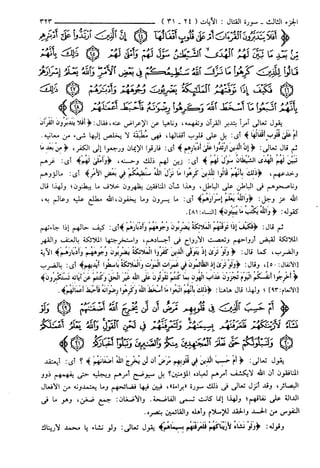 الجزء الثالث - سورة القتال: الآيات (٢٤ - ٣١) ٣٢٣
﴿أَفَلَا يَتَدَبَّرُونَ الْقُرْءَانَ أَمْ عَلَىٰ قُلُوبٍ أَقْفَالُهَا إِنَّ الَّذِينَ ارْتَدُّوا عَلَىٰ أَدْبَارِهِم
مِّن بَعْدِ مَا تَبَيَّنَ لَهُمُ الْهُدَى الشَّيْطَانُ سَوَّلَ لَهُمْ وَأَمْلَىٰ لَهُمْ ذَٰلِكَ بِأَنَّهُمْ
قَالُوا لِلَّذِينَ كَرِهُوا مَا نَزَّلَ اللَّهُ سَنُطِيعُكُمْ فِي بَعْضِ الْأَمْرِ وَاللَّهُ يَعْلَمُ إِسْرَارَهُمْ
فَكَيْفَ إِذَا تَوَفَّتْهُمُ الْمَلَائِكَةُ يَضْرِبُونَ وُجُوهَهُمْ وَأَدْبَارَهُمْ ذَٰلِكَ
بِأَنَّهُمُ اتَّبَعُوا مَا أَسْخَطَ اللَّهَ وَكَرِهُوا رِضْوَانَهُ فَأَحْبَطَ أَعْمَالَهُمْ﴾
يقول تعالى آمراً بتدبر القرآن وتفهمه، وناهيا عن الإعراض عنه، فقال: ﴿أَفَلَا يَتَدَبَّرُونَ الْقُرْآنَ
أَمْ عَلَىٰ قُلُوبٍ أَقْفَالُهَا﴾ أي: بل على قلوب أقفالها، فهي مطبقة لا يخلص إليها شيء من معانيه.
ثم قال تعالى: ﴿إِنَّ الَّذِينَ ارْتَدُّوا عَلَىٰ أَدْبَارِهِم﴾ أي: فارقوا الإيمان ورجعوا إلى الكفر، ﴿مِّن بَعْدِ مَا
تَبَيَّنَ لَهُمُ الْهُدَى الشَّيْطَانُ سَوَّلَ لَهُمْ﴾ أي: زين لهم ذلك وحسنه، ﴿وَأَمْلَىٰ لَهُمْ﴾ أي: غرهم
وخدعهم، ﴿ذَٰلِكَ بِأَنَّهُمْ قَالُوا لِلَّذِينَ كَرِهُوا مَا نَزَّلَ اللَّهُ سَنُطِيعُكُمْ فِي بَعْضِ الْأَمْرِ﴾ أي: مالؤوهم
وناصحوهم في الباطن على الباطل، وهذا شأن المنافقين يظهرون خلاف ما يبطنون، ولهذا قال
الله عز وجل: ﴿وَاللَّهُ يَعْلَمُ إِسْرَارَهُمْ﴾ أي: ما يسرون وما يخفون، الله مطلع عليه وعالم به،
كقوله: ﴿وَاللَّهُ يَكْتُبُ مَا يُبَيِّتُونَ﴾ [النساء: ٨١].
ثم قال: ﴿فَكَيْفَ إِذَا تَوَفَّتْهُمُ الْمَلَائِكَةُ يَضْرِبُونَ وُجُوهَهُمْ وَأَدْبَارَهُمْ﴾ أي: كيف حالهم إذا جاءتهم
الملائكة لقبض أرواحهم وتعصت الأرواح في أجسادهم، واستخرجتها الملائكة بالعنف والقهر
والضرب، كما قال: ﴿وَلَوْ تَرَىٰ إِذْ يَتَوَفَّى الَّذِينَ كَفَرُوا الْمَلَائِكَةُ يَضْرِبُونَ وُجُوهَهُمْ وَأَدْبَارَهُمْ﴾ الآية
[الأنفال: ٥٠]، وقال: ﴿وَلَوْ تَرَىٰ إِذِ الظَّالِمُونَ فِي غَمَرَاتِ الْمَوْتِ وَالْمَلَائِكَةُ بَاسِطُو أَيْدِيهِمْ﴾ أي: بالضرب
﴿أَخْرِجُوا أَنفُسَكُمُ الْيَوْمَ تُجْزَوْنَ عَذَابَ الْهُونِ بِمَا كُنتُمْ تَقُولُونَ عَلَى اللَّهِ غَيْرَ الْحَقِّ وَكُنتُمْ عَنْ آيَاتِهِ تَسْتَكْبِرُونَ﴾
[الأنعام: ٩٣]؛ ولهذا قال هاهنا: ﴿ذَٰلِكَ بِأَنَّهُمُ اتَّبَعُوا مَا أَسْخَطَ اللَّهَ وَكَرِهُوا رِضْوَانَهُ فَأَحْبَطَ أَعْمَالَهُمْ﴾.
﴿أَمْ حَسِبَ الَّذِينَ فِي قُلُوبِهِم مَّرَضٌ أَن لَّن يُخْرِجَ اللَّهُ أَضْغَانَهُمْ وَلَوْ نَشَاءُ
لَأَرَيْنَاكَهُمْ فَلَعَرَفْتَهُم بِسِيمَاهُمْ وَلَتَعْرِفَنَّهُمْ فِي لَحْنِ الْقَوْلِ وَاللَّهُ يَعْلَمُ أَعْمَالَكُمْ
وَلَنَبْلُوَنَّكُمْ حَتَّىٰ نَعْلَمَ الْمُجَاهِدِينَ مِنكُمْ وَالصَّابِرِينَ وَنَبْلُوَ أَخْبَارَكُمْ﴾
يقول تعالى: ﴿أَمْ حَسِبَ الَّذِينَ فِي قُلُوبِهِم مَّرَضٌ أَن لَّن يُخْرِجَ اللَّهُ أَضْغَانَهُمْ﴾؟ أي: أيعتقد
المنافقون أن الله لا يكشف أمرهم لعباده المؤمنين؟ بل سيوضح أمرهم ويجليه حتى يفهمهم ذوو
البصائر، وقد أنزل تعالى في ذلك سورة «براءة»، فبين فيها فضائحهم وما يعتمدونه من الأفعال
الدالة على نفاقهم؛ ولهذا إنما كانت تسمى الفاضحة. والأضغان: جمع ضغن، وهو ما في
النفوس من الحسد والحقد للإسلام وأهله والقائمين بنصره.
وقوله: ﴿وَلَوْ نَشَاءُ لَأَرَيْنَاكَهُمْ فَلَعَرَفْتَهُم بِسِيمَاهُمْ﴾ يقول تعالى: ولو نشاء يا محمد لأريناك